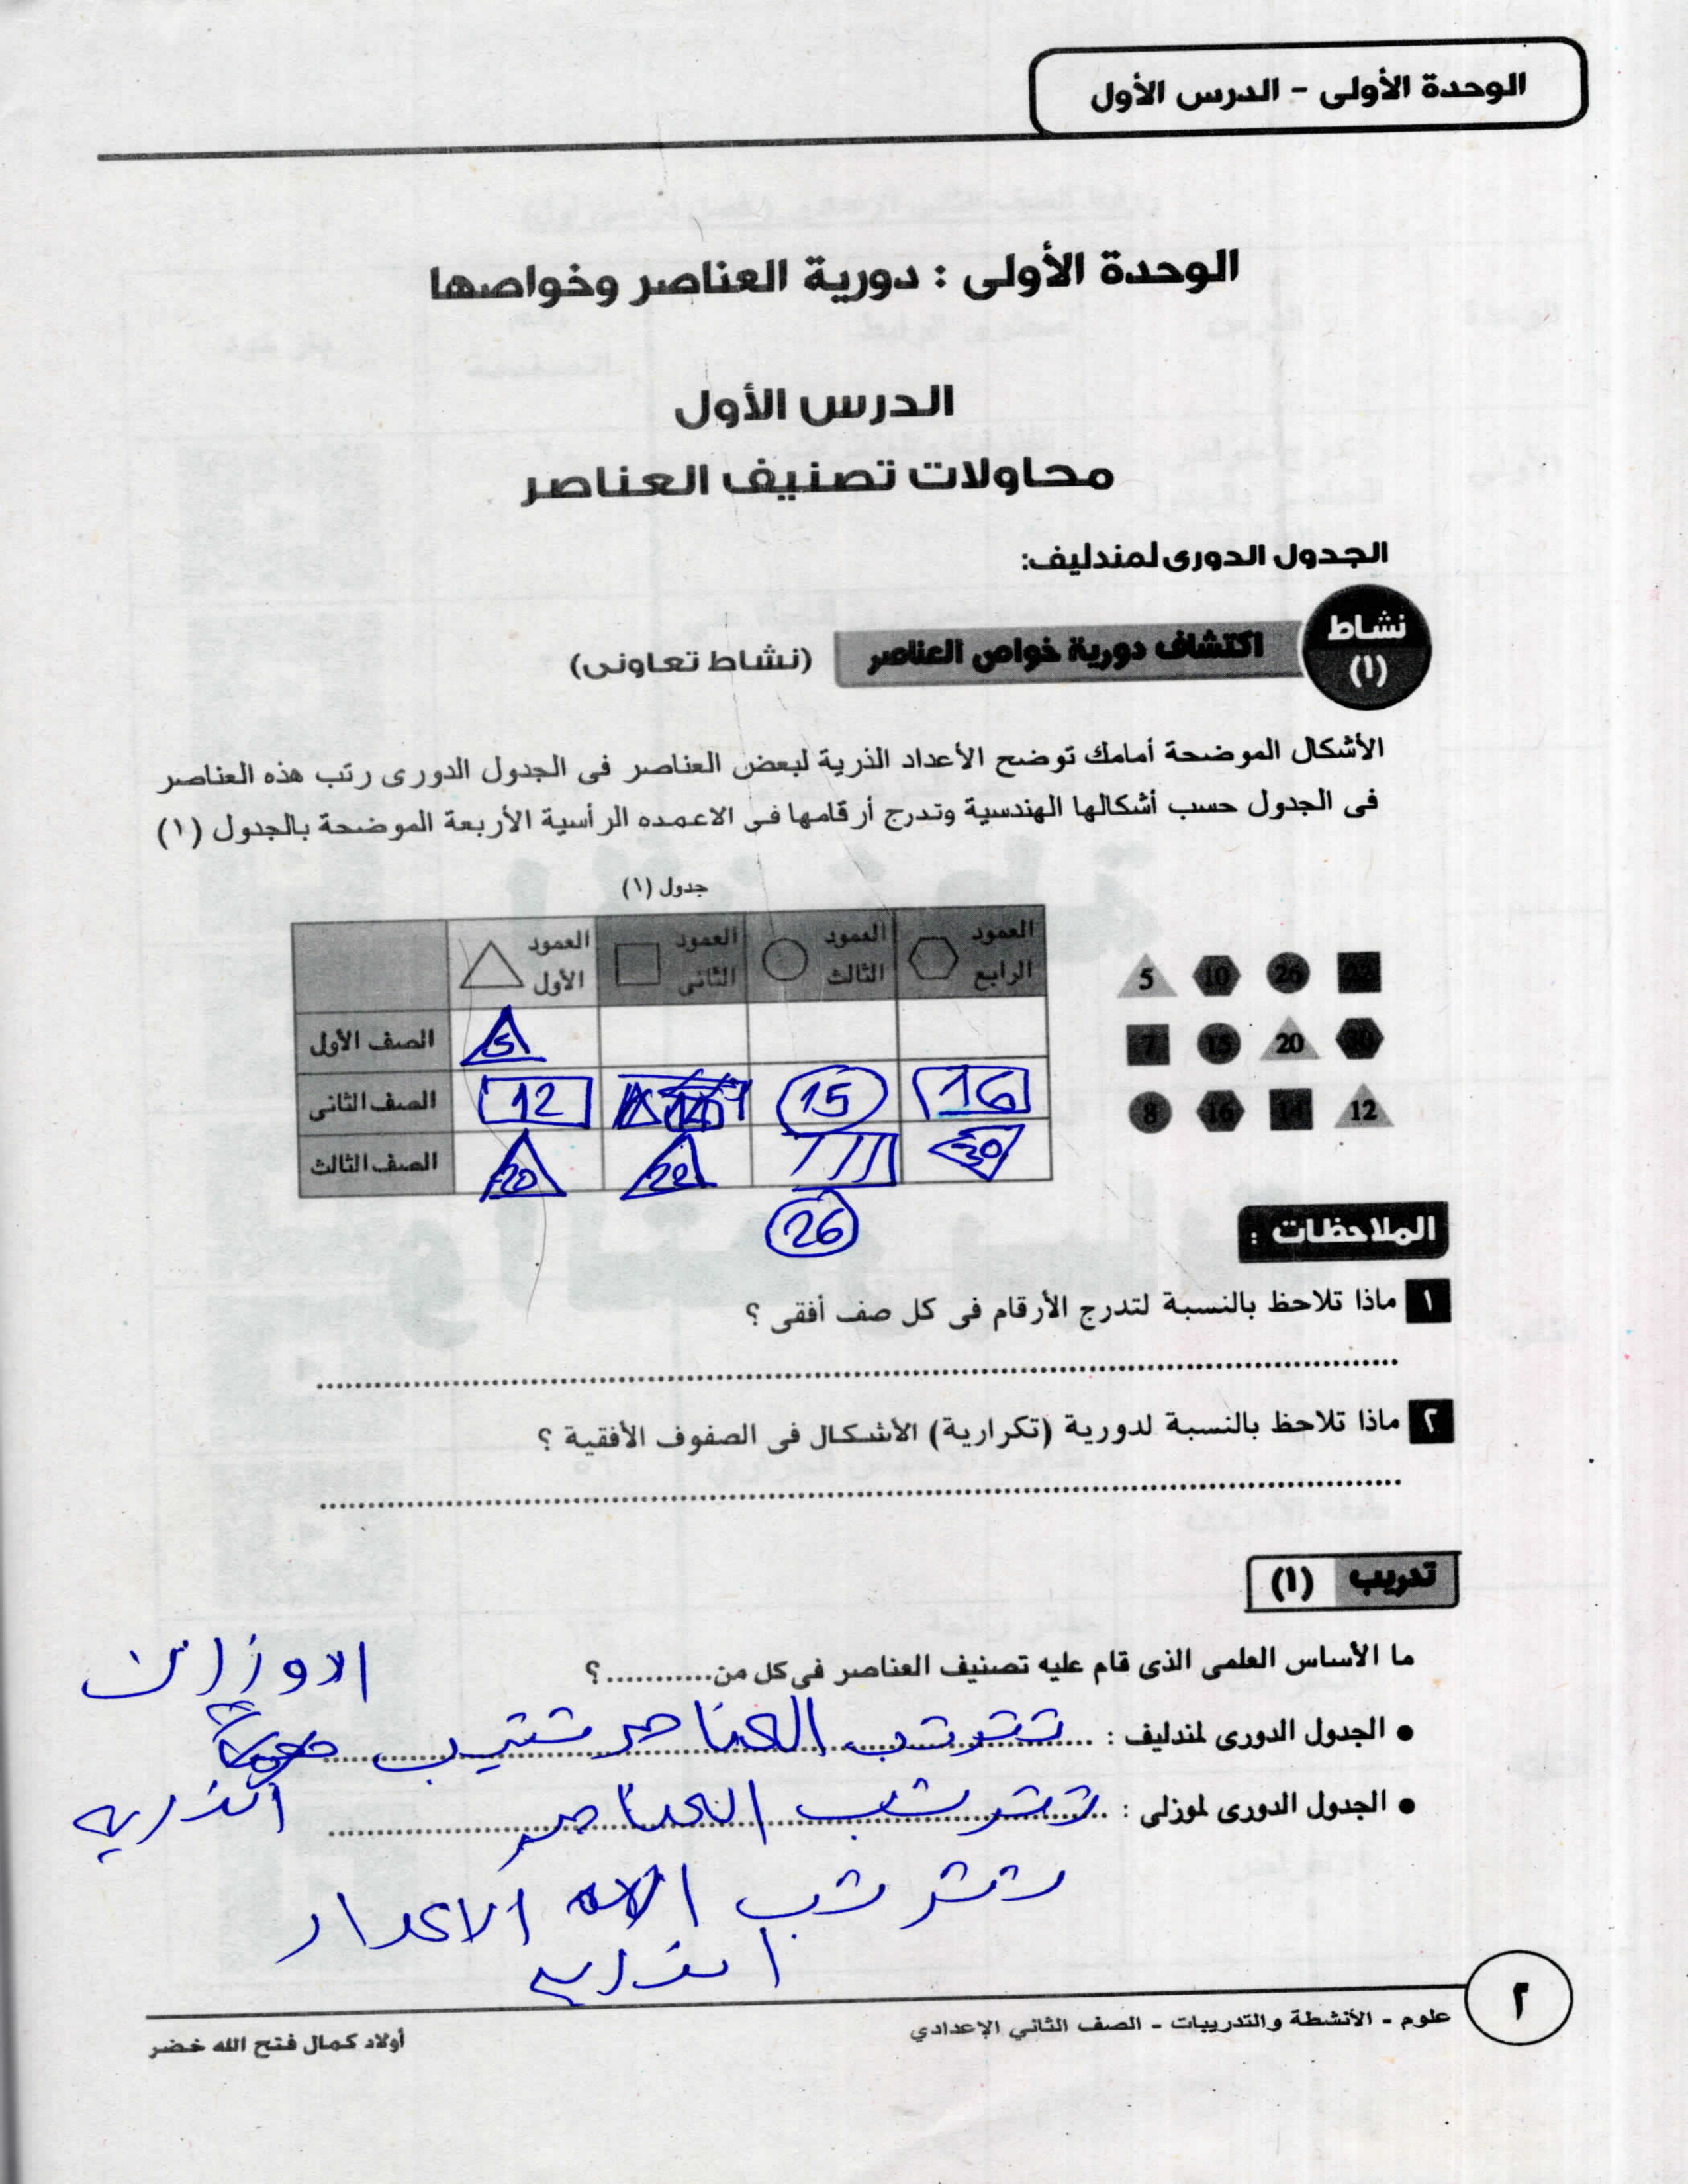 الوحدة الأولى - الدرس الأول
الوحدة الأولى : دورية العناصر وخواصها
الدرس الأول
محاولات تصنيف العناصر
الجدول الدورى لمندليف:
نشاط (١) اكتشاف دورية خواص العناصر (نشاط تعاونى)
الأشكال الموضحة أمامك توضح الأعداد الذرية لبعض العناصر فى الجدول الدورى رتب هذه العناصر
فى الجدول حسب أشكالها الهندسية وتدرج أرقامها فى الاعمده الرأسية الأربعة الموضحة بالجدول (١)
جدول (١)
العمود الأول العمود الثانى العمود الثالث العمود الرابع
الصف الأول 5
الصف الثانى 12 15 16
الصف الثالث 20 22 30
26
5 10 26 22
7 15 20 30
8 16 14 12
الملاحظات :
١ ماذا تلاحظ بالنسبة لتدرج الأرقام فى كل صف أفقى ؟
٢ ماذا تلاحظ بالنسبة لدورية (تكرارية) الأشكال فى الصفوف الأفقية ؟
تدريب (١)
ما الأساس العلمى الذى قام عليه تصنيف العناصر فى كل من...........؟
• الجدول الدورى لمندليف : تترتب العناصر تتيب الاوزان الذريه
• الجدول الدورى لموزلى : تترتب العناصر
تترتب الاعداد
الذريه
علوم - الأنشطة والتدريبات - الصف الثاني الإعدادي
٢
أولاد كمال فتح الله خضر